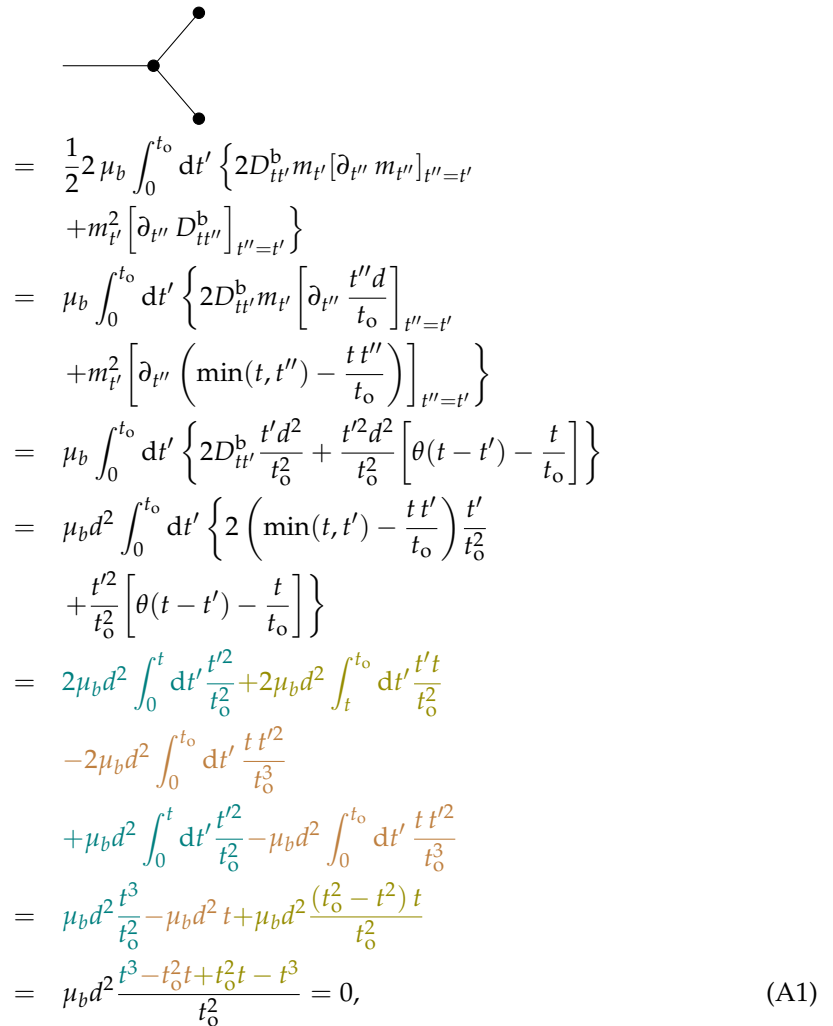 = \frac{1}{2} 2 \mu_b \int_0^{t_o} dt' \{ 2D^b_{tt'} m_{t'} [\partial_{t''} m_{t''}]_{t''=t'}
+ m^2_{t'} [\partial_{t''} D^b_{tt''}]_{t''=t'} \}
= \mu_b \int_0^{t_o} dt' \{ 2D^b_{tt'} m_{t'} [\partial_{t''} \frac{t'' d}{t_o}]_{t''=t'}
+ m^2_{t'} [\partial_{t''} ( \min(t, t'') - \frac{t t''}{t_o} )]_{t''=t'} \}
= \mu_b \int_0^{t_o} dt' \{ 2D^b_{tt'} \frac{t' d^2}{t_o^2} + \frac{t'^2 d^2}{t_o^2} [ \theta(t - t') - \frac{t}{t_o} ] \}
= \mu_b d^2 \int_0^{t_o} dt' \{ 2 ( \min(t, t') - \frac{t t'}{t_o} ) \frac{t'}{t_o^2}
+ \frac{t'^2}{t_o^2} [ \theta(t - t') - \frac{t}{t_o} ] \}
= 2\mu_b d^2 \int_0^t dt' \frac{t'^2}{t_o^2} + 2\mu_b d^2 \int_t^{t_o} dt' \frac{t' t}{t_o^2}
-2\mu_b d^2 \int_0^{t_o} dt' \frac{t t'^2}{t_o^3}
+\mu_b d^2 \int_0^t dt' \frac{t'^2}{t_o^2} - \mu_b d^2 \int_0^{t_o} dt' \frac{t t'^2}{t_o^3}
= \mu_b d^2 \frac{t^3}{t_o^2} - \mu_b d^2 t + \mu_b d^2 \frac{(t_o^2 - t^2) t}{t_o^2}
= \mu_b d^2 \frac{t^3 - t_o^2 t + t_o^2 t - t^3}{t_o^2} = 0, (A1)